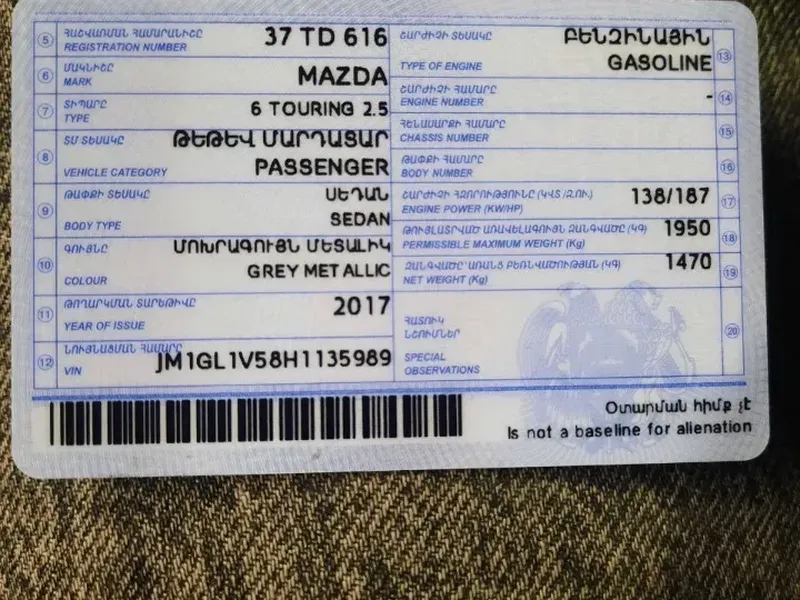 5 ՀԱՇՎԱՌՄԱՆ ՀԱՄԱՐԱՆԻՇԸ
REGISTRATION NUMBER 37 TD 616
6 ՄԱԿՆԻՇԸ
MARK MAZDA
7 ՏԻՊԱՐԸ
TYPE 6 TOURING 2.5
8 ՏՄ ՏԵՍԱԿԸ ԹԵԹԵՎ ՄԱՐԴԱՏԱՐ
VEHICLE CATEGORY PASSENGER
9 ԹԱՓՔԻ ՏԵՍԱԿԸ ՍԵԴԱՆ
BODY TYPE SEDAN
10 ԳՈՒՅՆԸ ՄՈԽՐԱԳՈՒՅՆ ՄԵՏԱԼԻԿ
COLOUR GREY METALLIC
11 ԹՈՂԱՐԿՄԱՆ ՏԱՐԵԹԻՎԸ
YEAR OF ISSUE 2017
12 ՆՈՒՅՆԱՑՄԱՆ ՀԱՄԱՐԸ
VIN JM1GL1V58H1135989
ՇԱՐԺԻՉԻ ՏԵՍԱԿԸ ԲԵՆԶԻՆԱՅԻՆ 13
TYPE OF ENGINE GASOLINE
ՇԱՐԺԻՉԻ ՀԱՄԱՐԸ 14
ENGINE NUMBER -
ՀԵՆԱՍԱՐՔԻ ՀԱՄԱՐԸ 15
CHASSIS NUMBER
ԹԱՓՔԻ ՀԱՄԱՐԸ 16
BODY NUMBER
ՇԱՐԺԻՉԻ ՀԶՈՐՈՒԹՅՈՒՆԸ (ԿՎՏ/ՁՈՒ.) 138/187 17
ENGINE POWER (KW/HP)
ԹՈՒՅԼԱՏՐՎԱԾ ԱՌԱՎԵԼԱԳՈՒՅՆ ԶԱՆԳՎԱԾԸ (ԿԳ) 1950 18
PERMISSIBLE MAXIMUM WEIGHT (Kg)
ԶԱՆԳՎԱԾԸ ԱՌԱՆՑ ԲԵՌՆՎԱԾՈՒԹՅԱՆ (ԿԳ) 1470 19
NET WEIGHT (Kg)
ՀԱՏՈՒԿ
ՆՇՈՒՄՆԵՐ 20
SPECIAL
OBSERVATIONS
Օտարման հիմք չէ
Is not a baseline for alienation